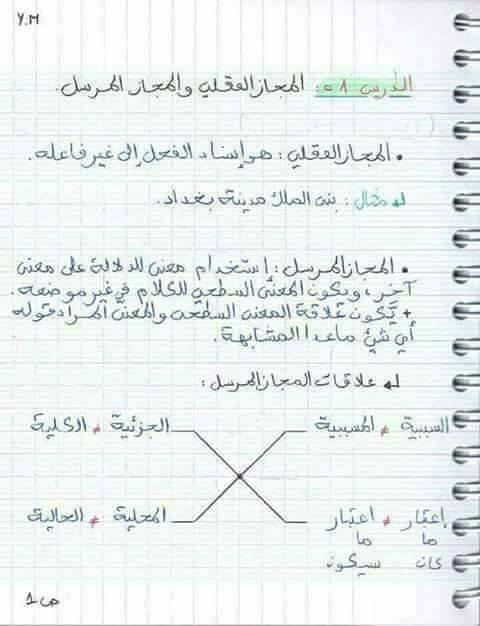 Y.M
الدرس 08: المجاز العقلي والمجاز المرسل.
• المجاز العقلي: هو إسناد الفعل إلى غير فاعله.
↲ مثال: بنى الملك مدينة بغداد.
• المجاز المرسل: إستخدام معنى للدلالة على معنى
آخر، ويكون المعنى السطحي للكلام في غير موضعه.
+ تكون علاقة المعنى السطحي والمعنى المراد قوله
أي شيئ ماعدا المشابهة.
↲ علاقات المجاز المرسل:
السببية ≠ المسببية الجزئية ≠ الكلية
إعتبار ≠ اعتبار المحلية ≠ الحالية
ما ما
كان سيكون
ص 1